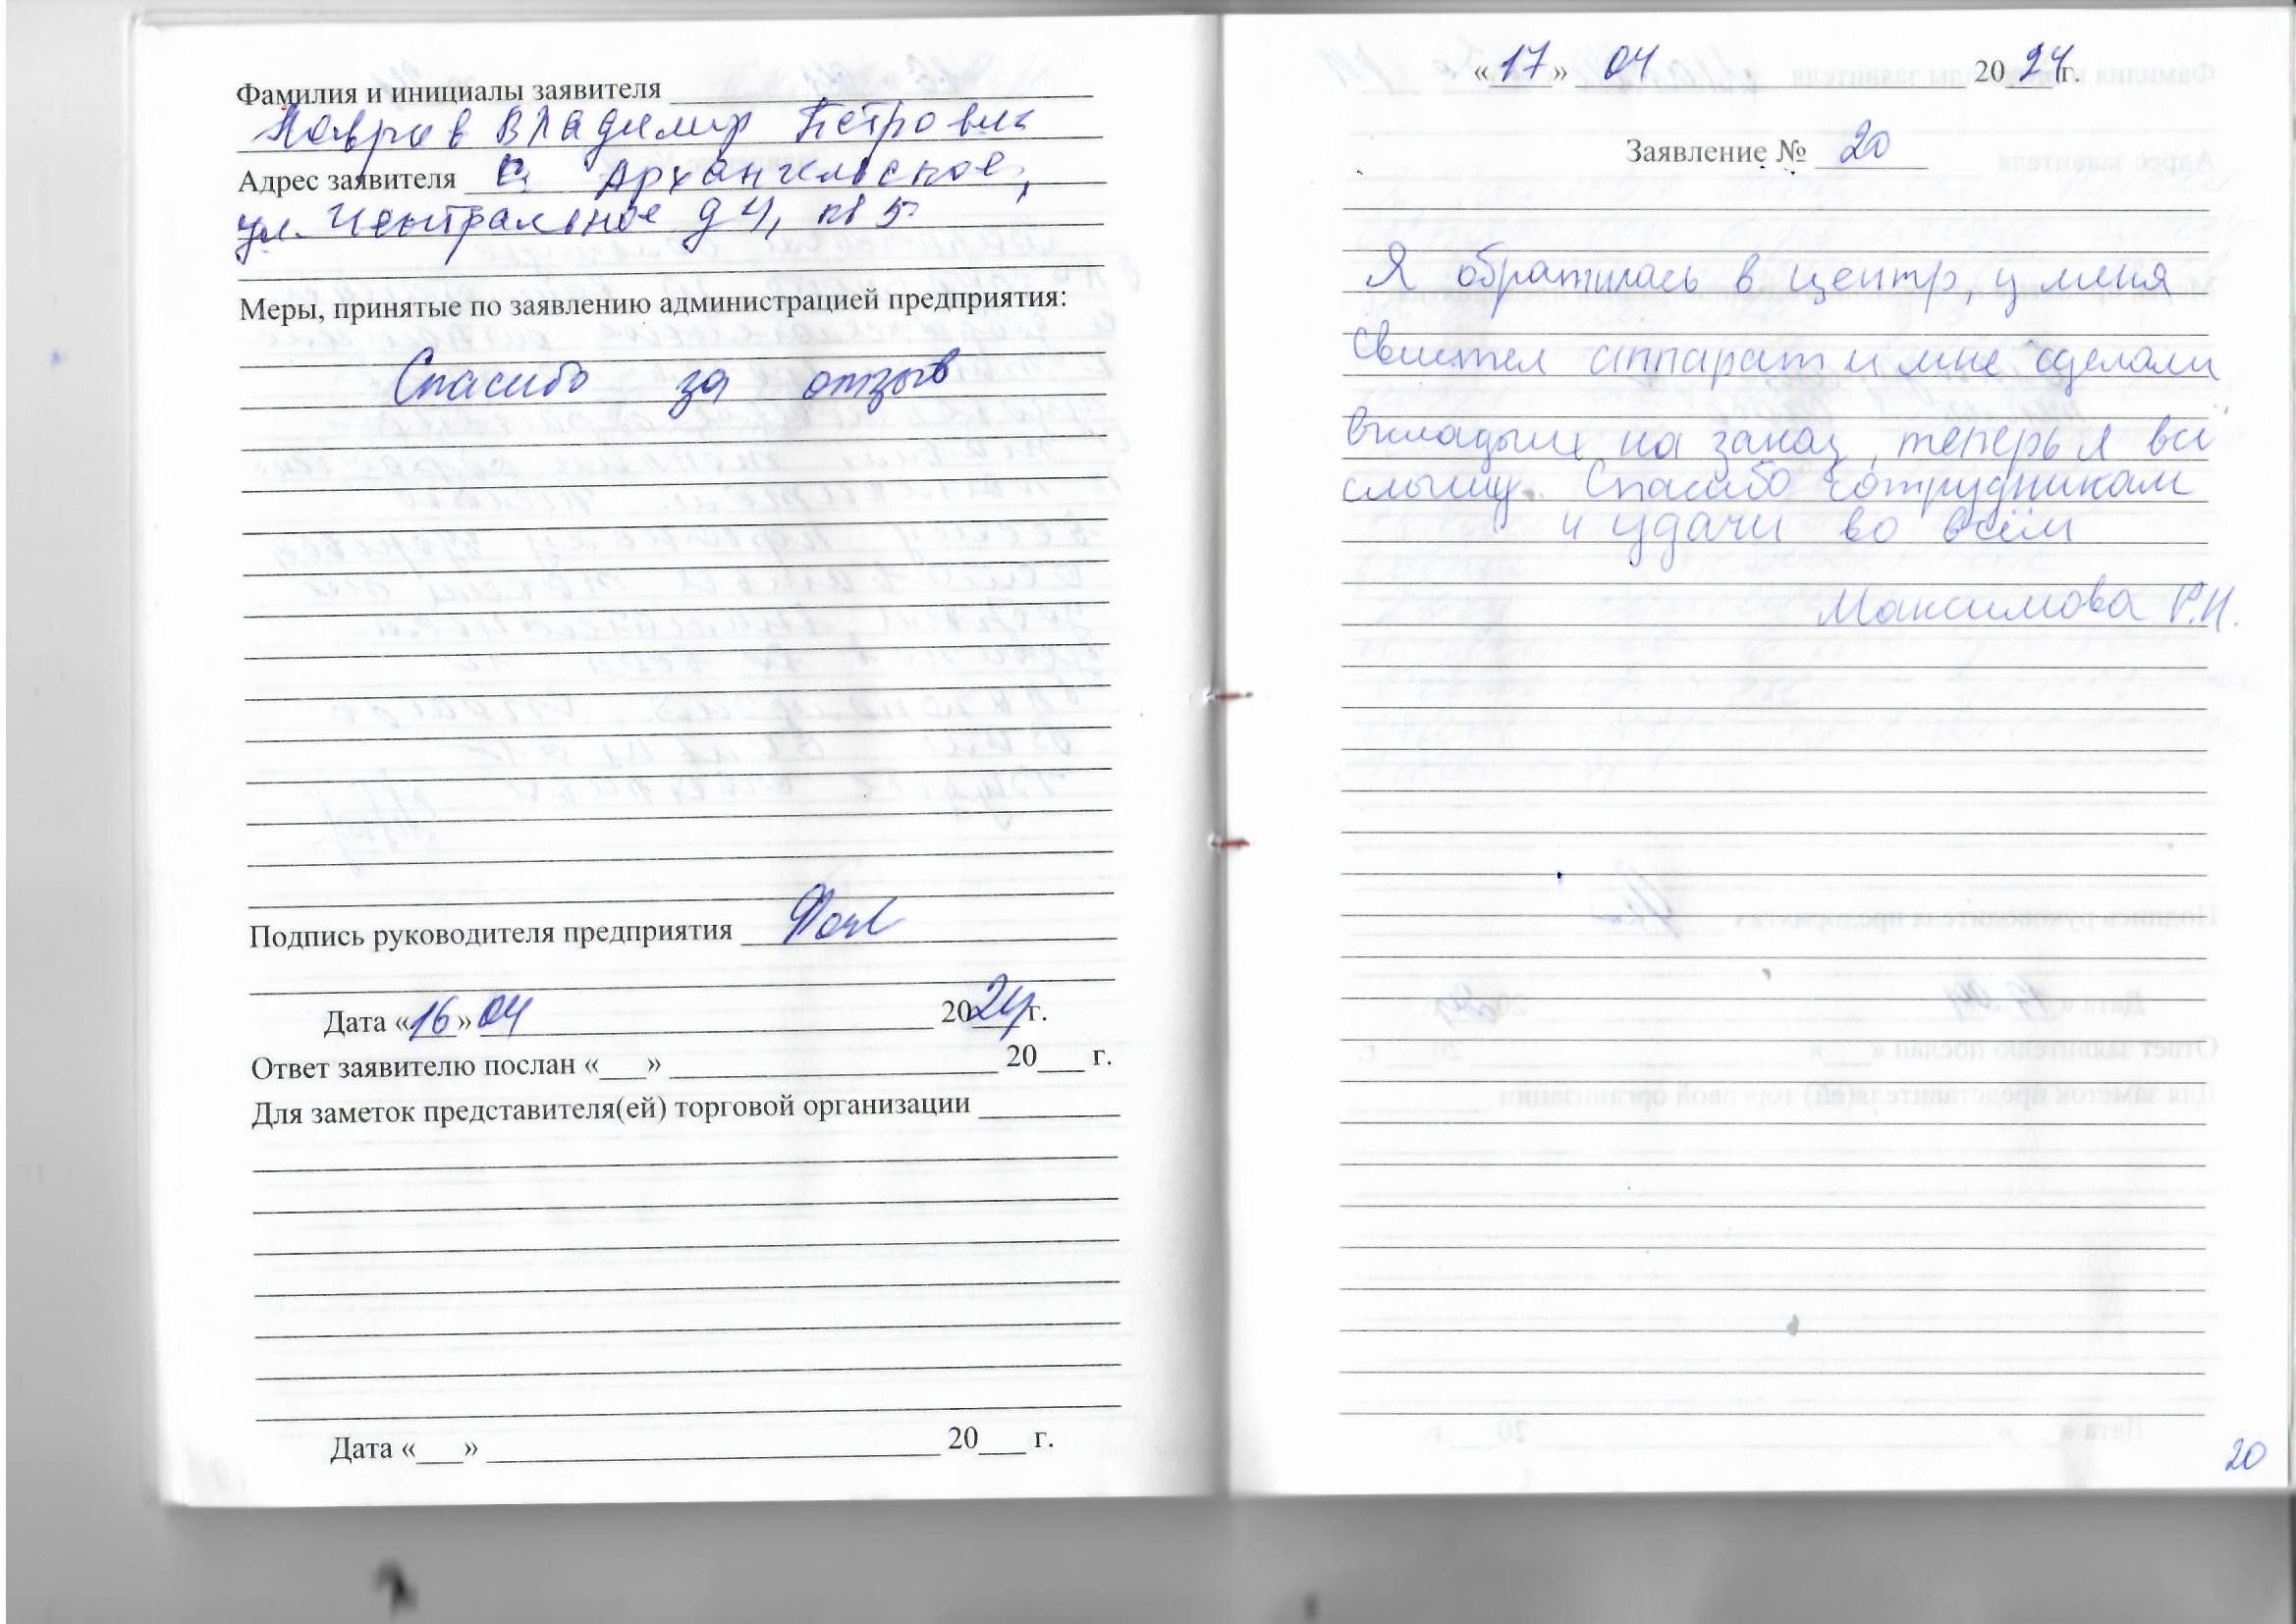 Фамилия и инициалы заявителя
Владимир Петрович
Адрес заявителя с. Архангельское,
ул. Центральное д 4, кв 5
Меры, принятые по заявлению администрацией предприятия:
Спасибо за отзыв
Подпись руководителя предприятия
Дата «16» 04 2024 г.
Ответ заявителю послан «___» ___ 20___ г.
Для заметок представителя(ей) торговой организации
Дата «___» ___ 20___ г.
«17» 04 2024 г.
Заявление № 20
Я обратилась в центр, у меня
свистел аппарат и мне сделали
вкладыш на заказ, теперь я всё
слышу. Спасибо сотрудникам
и удачи во всём
Максимова Р.Н.
20